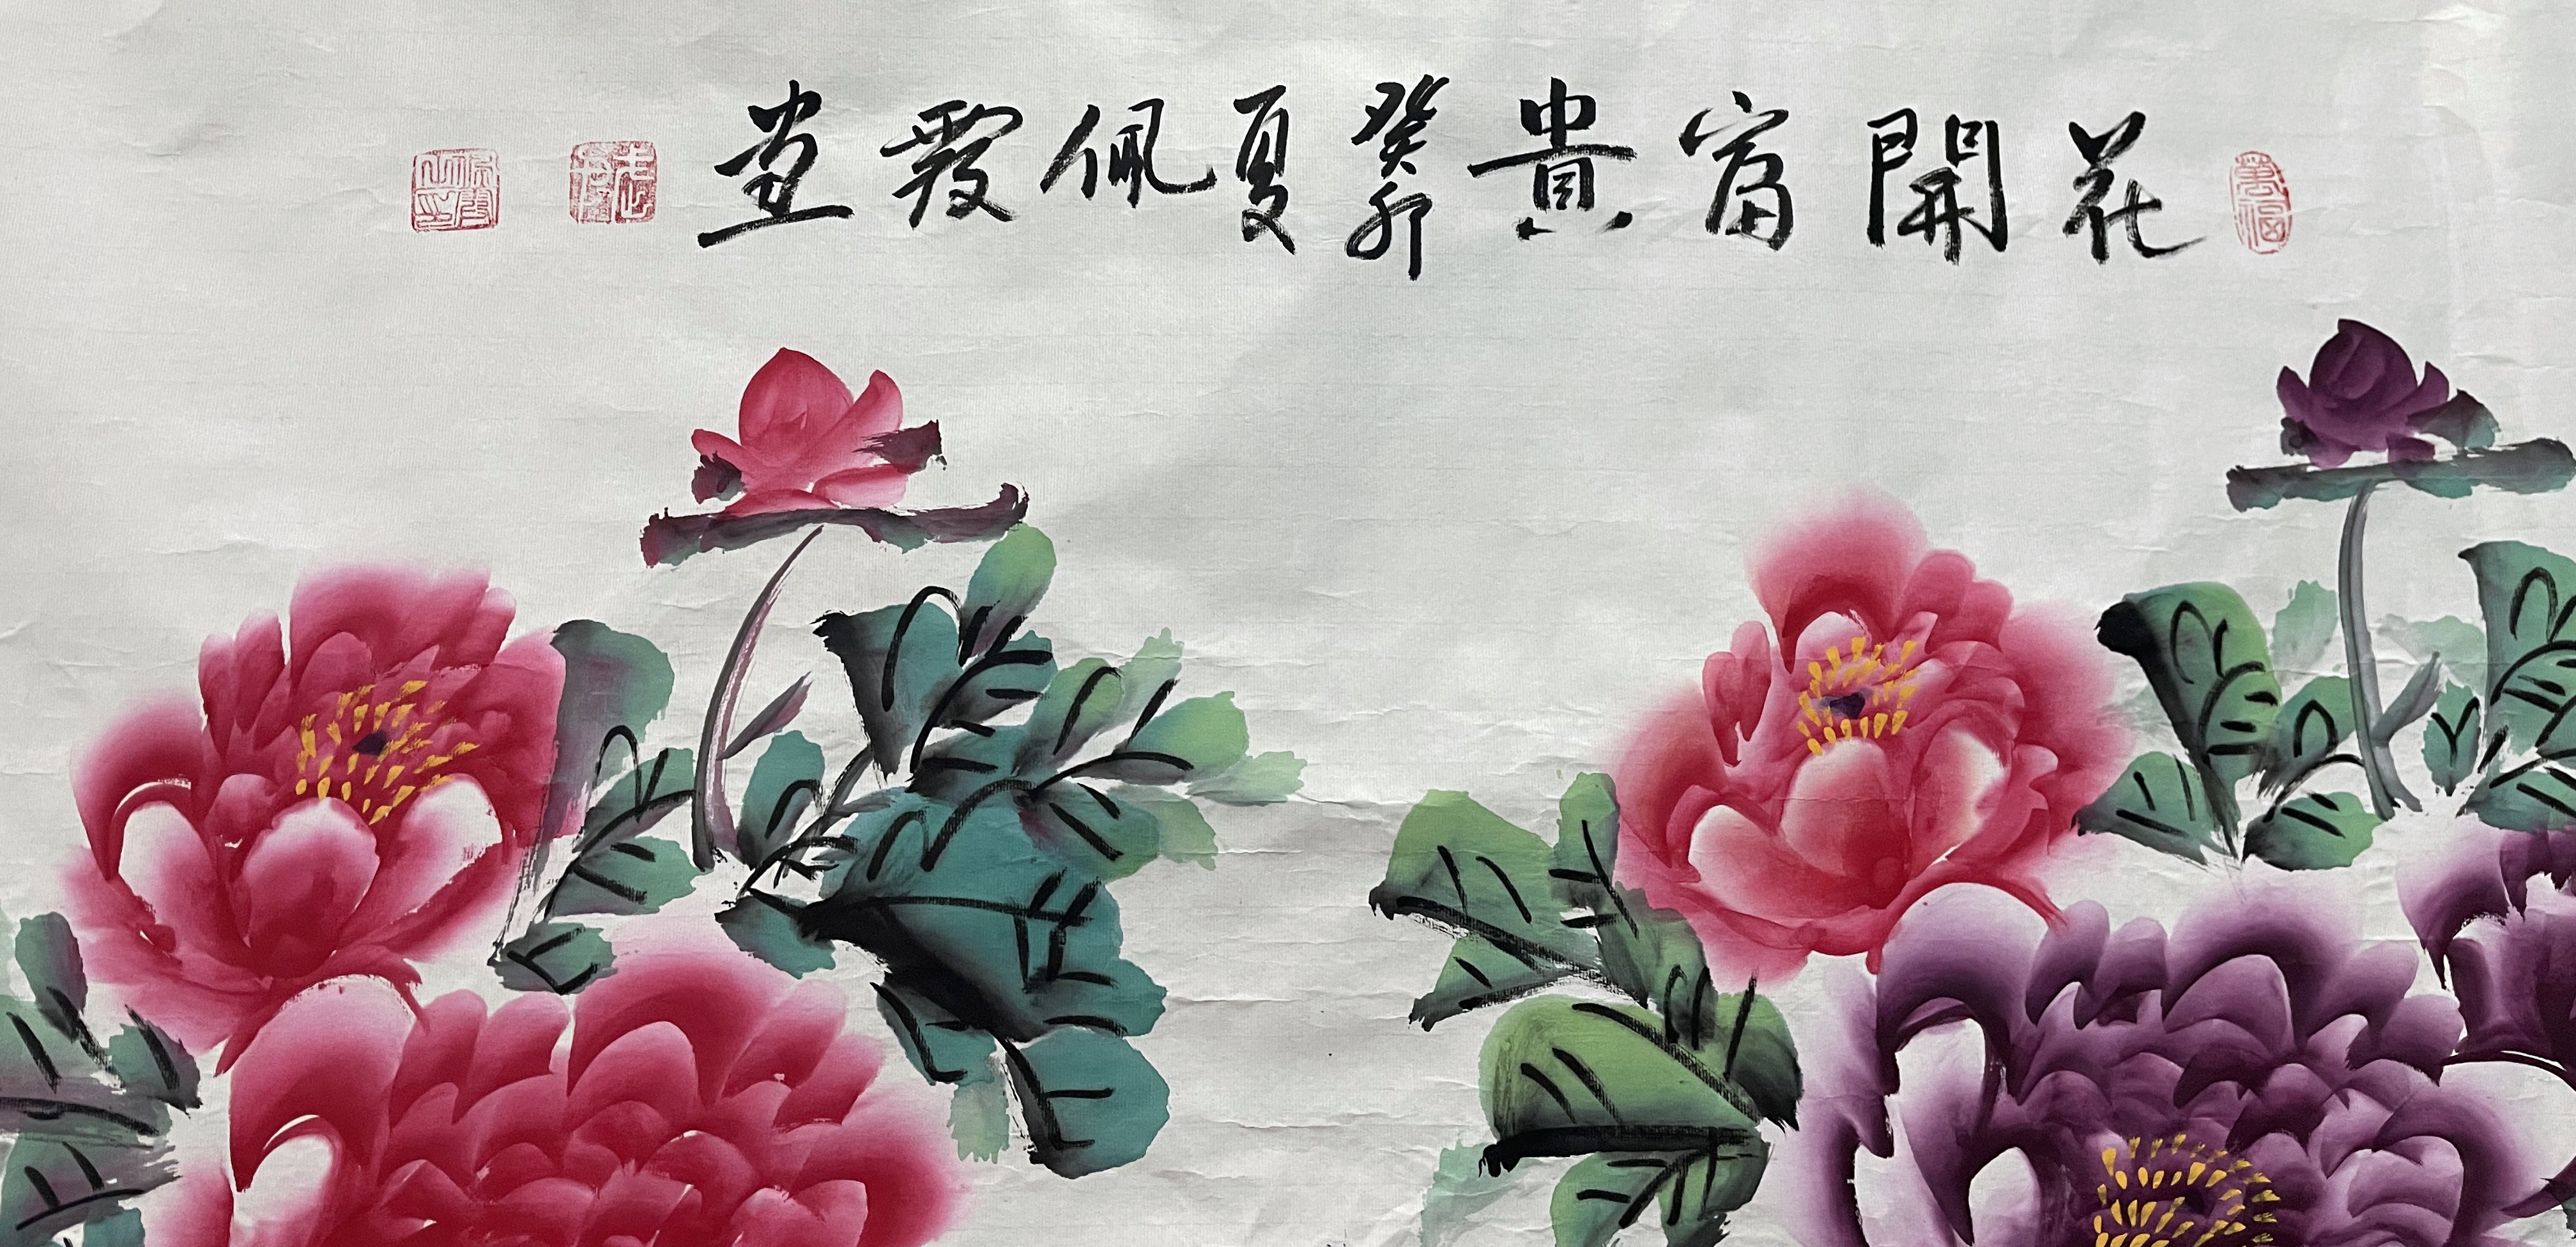 花開富貴癸卯夏佩霞画